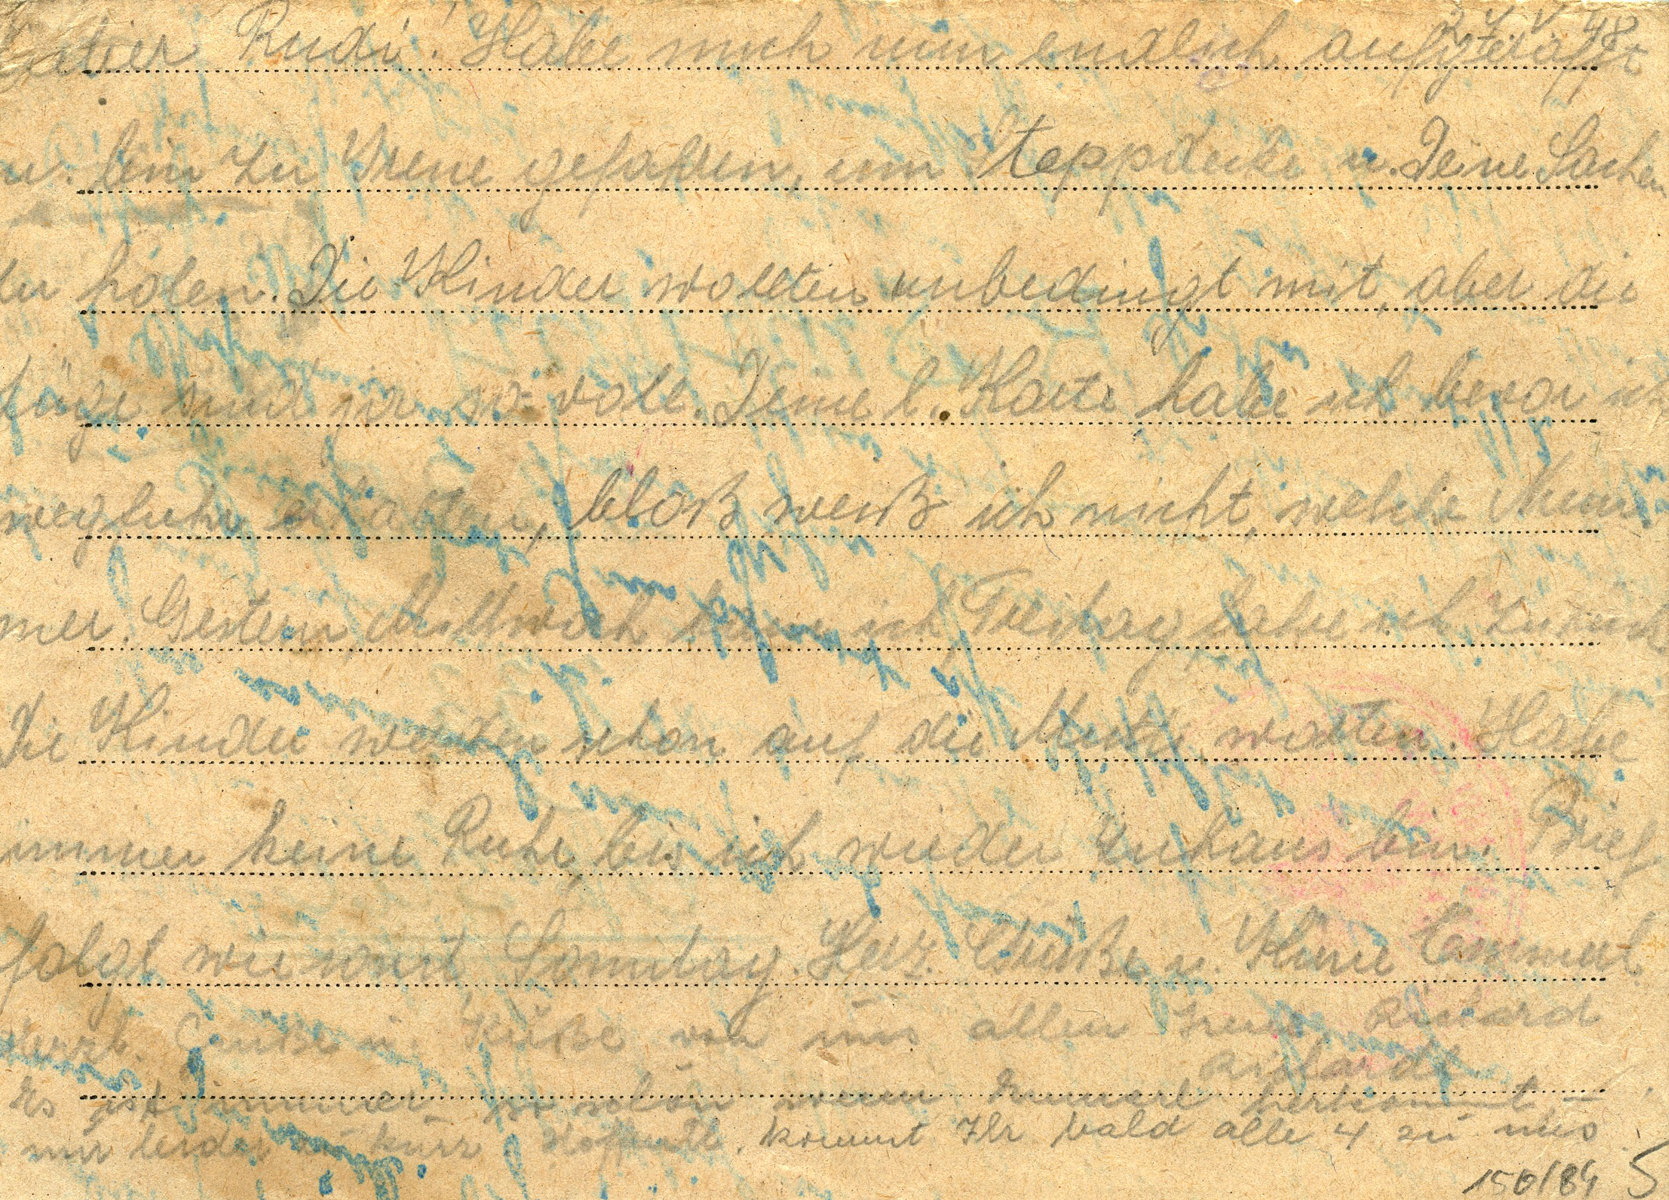 27. V. 48
Lieber Rudi! Habe mich nun endlich aufgerafft
u. bin zu Irene gefahren, um Steppdecke u. Deine Sachen
zu holen. Die Kinder wollten unbedingt mit, aber die
Züge sind ja so voll. Deine l. Karte habe ich bevor ich
wegfuhr erhalten, bloß weiß ich nicht, welche Num
mer. Gestern, Mittwoch kam ich, Freitag fahre ich zurück
Die Kinder werden schon auf die Mutti warten. Habe
immer keine Ruhe, bis ich wieder zuhaus bin. Brief
folgt wie sonst Sonntag. Herz. Grüße u. Küsse Emmerl.
Herzl. Grüße u. Küße von uns allen Irene Richard
Richardl
Es ist immer so schön wenn Emmerl herkommt –
nur leider zu kurz. Hoffentl. kommt Ihr bald alle 4 zu uns
150/84 S